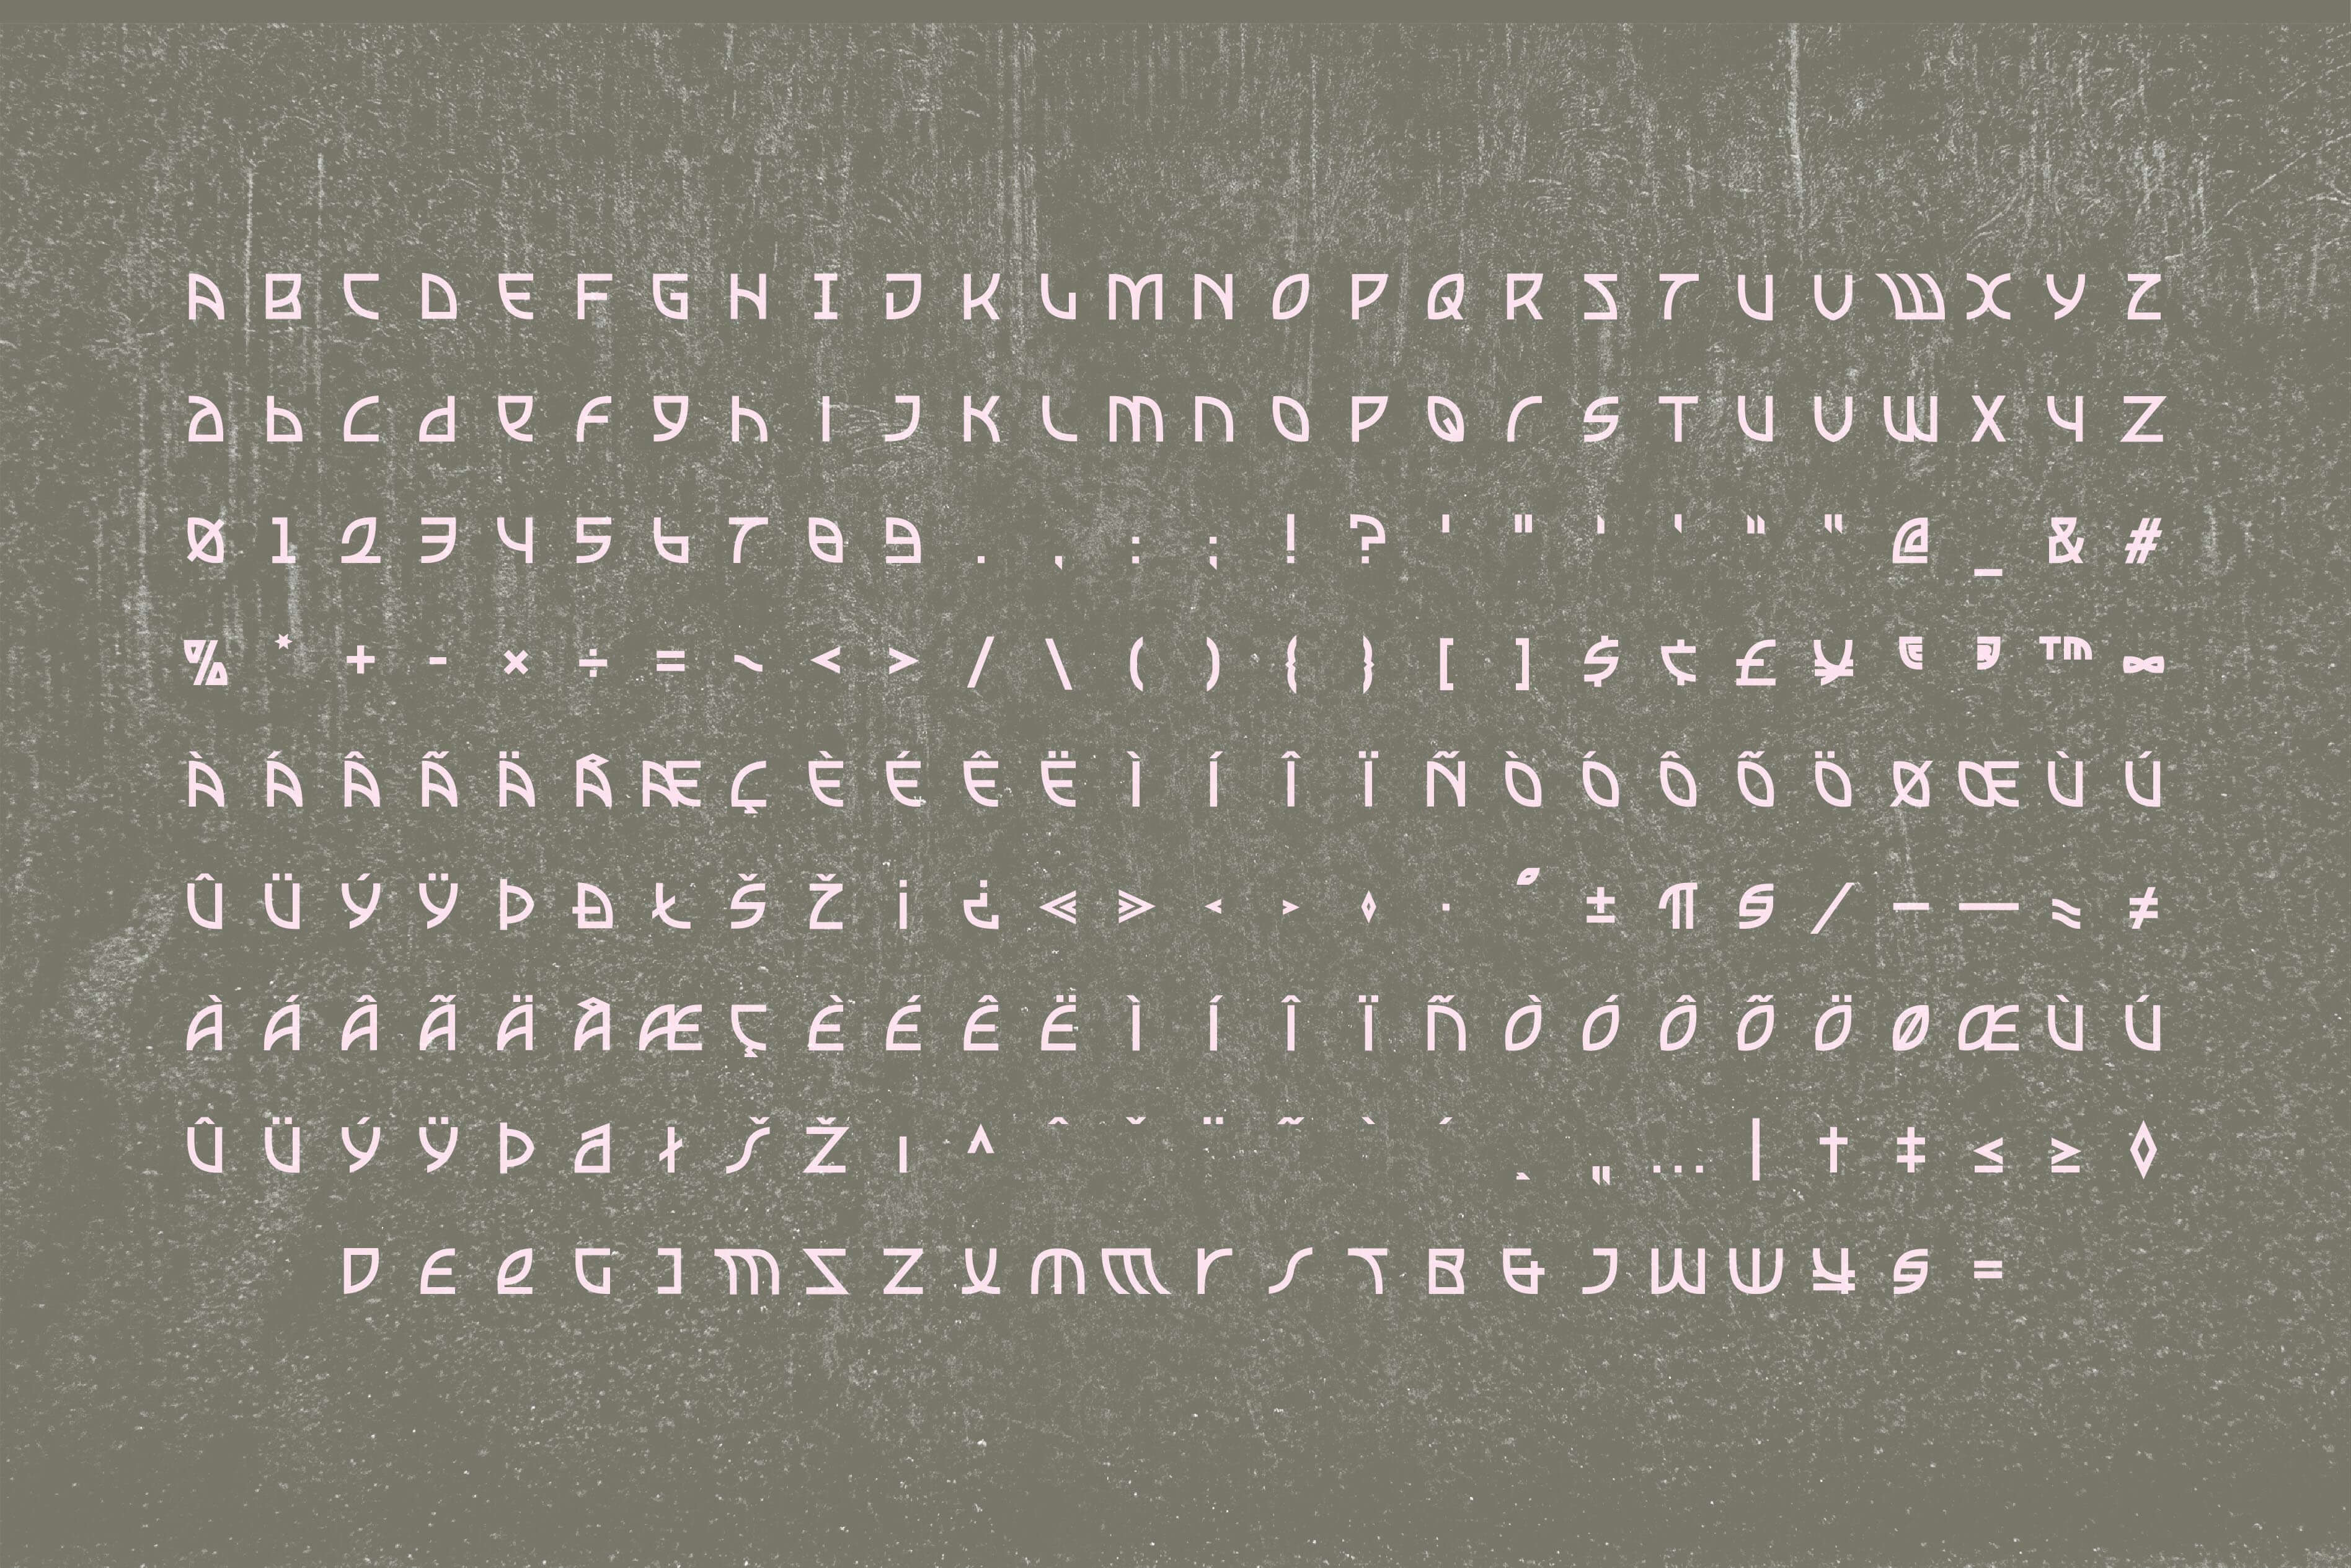 A B C D E F G H I J K L M N O P Q R S T U V W X Y Z
a b c d e f g h i j k l m n o p q r s t u v w x y z
0 1 2 3 4 5 6 7 8 9 . , : ; ! ? ' " ‘ ’ “ ” @ _ & #
% * + - × ÷ = ~ < > / \ ( ) { } [ ] $ ¢ £ ¥ ™ ∞
À Á Â Ã Ä Å Æ Ç È É Ê Ë Ì Í Î Ï Ñ Ò Ó Ô Õ Ö Ø Œ Ù Ú
Û Ü Ý Ÿ Þ Ð Ł Š Ž ¡ ¿ « » ‹ › · ° ± ¶ § ⁄ – — ≈ ≠
à á â ã ä å æ ç è é ê ë ì í î ï ñ ò ó ô õ ö ø œ ù ú
û ü ý ÿ þ ð ł š ž ı ^ ˆ ˇ ¨ ˜ ` ´ ¸ „ … | † ‡ ≤ ≥ ◊
D E e G J M S Z Y M W r S T B & J W W ¥ S =